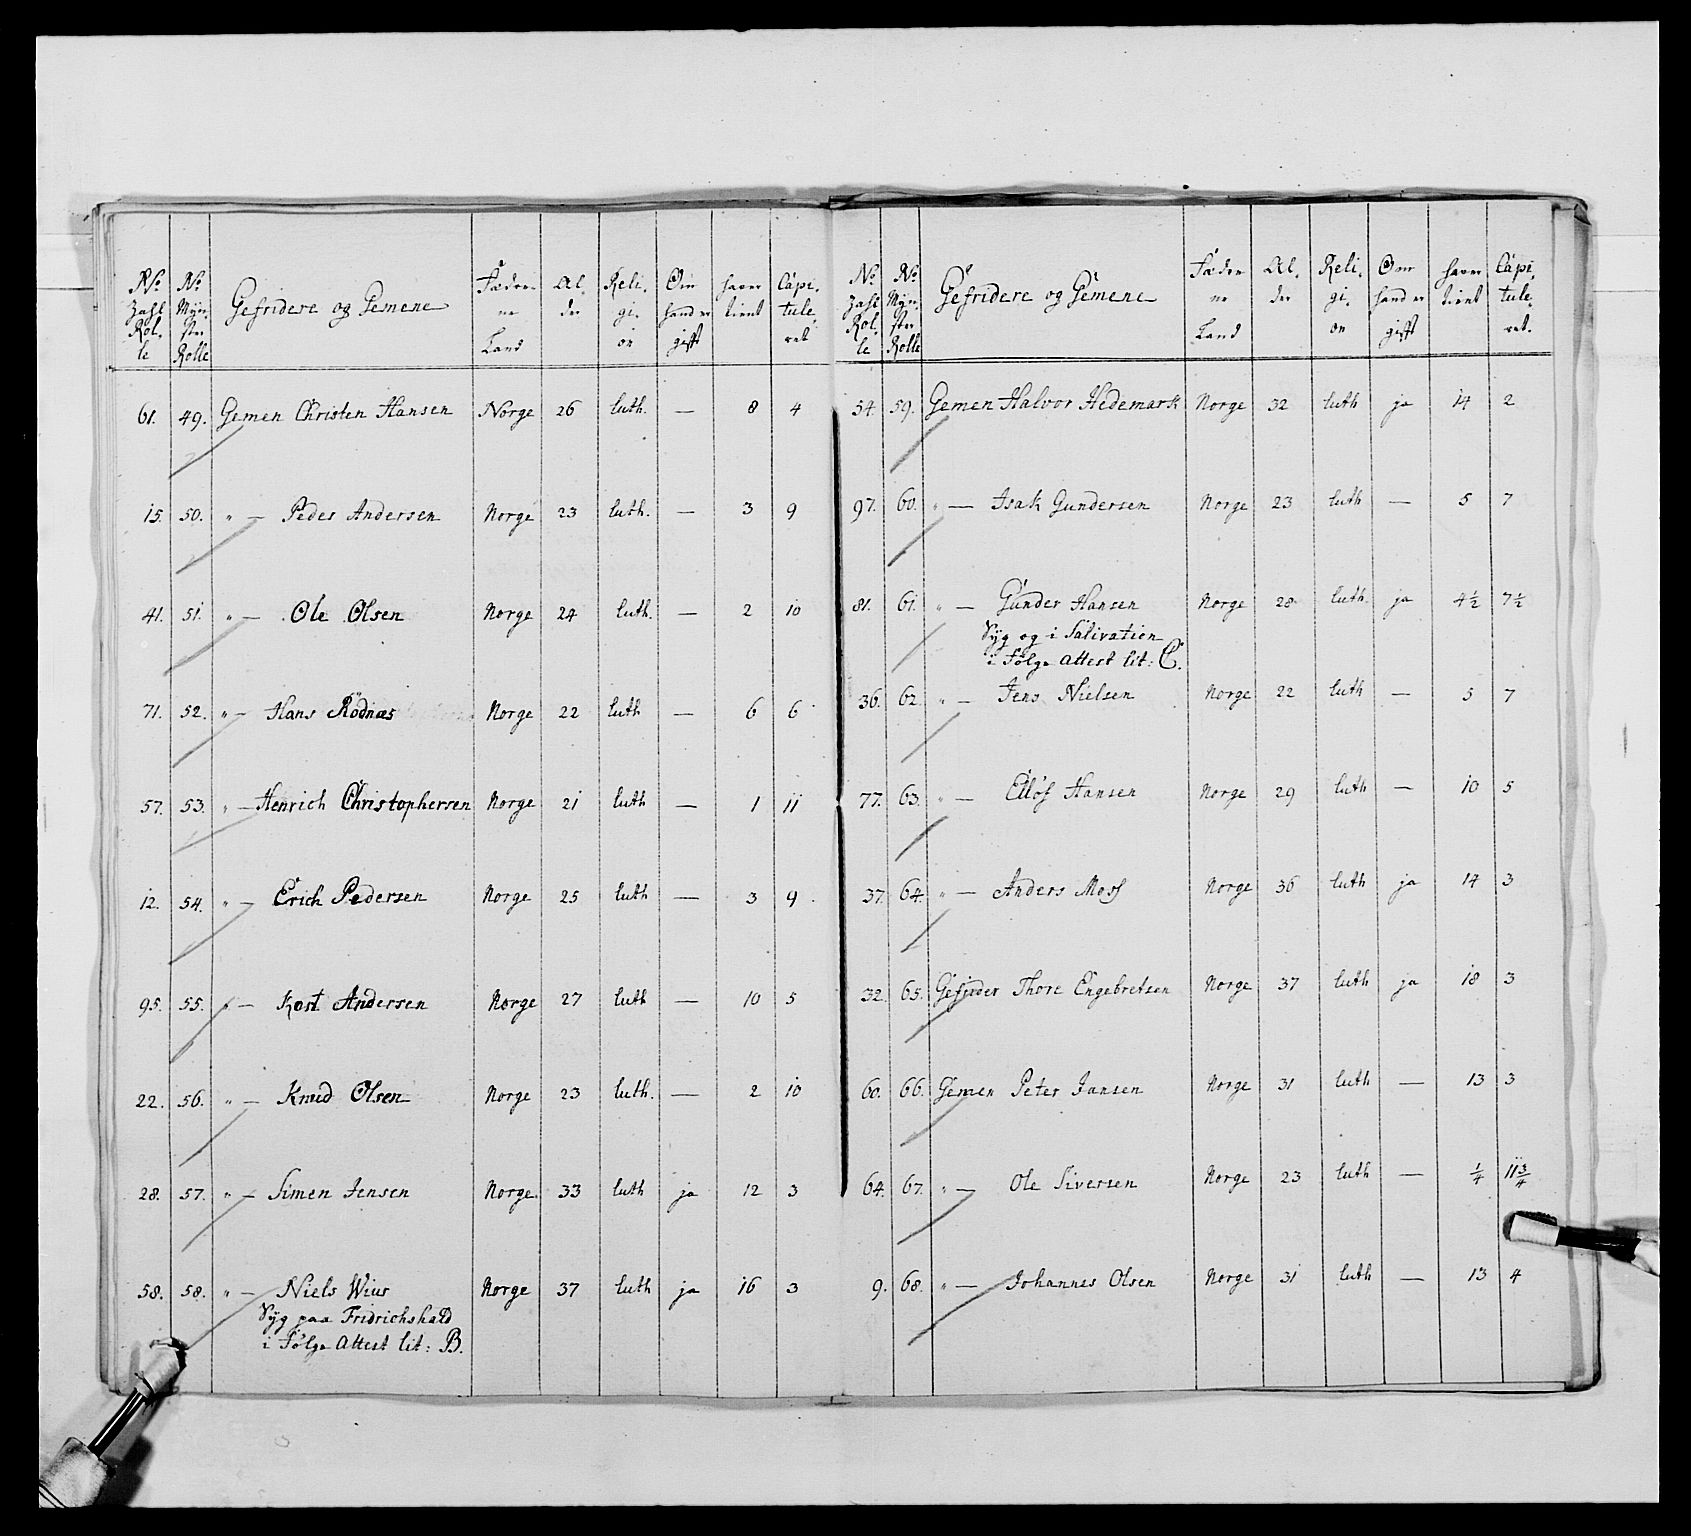 No Zahl Rol. le | No Mÿn- ster Rolle | Gefridere og Gemene | Fæder- ne Land | Al- der | Reli- gi- on | Om hand er gifft | haver tient | Capi- tule- ret
61. 49. Gemen Christen Hansen Norge 26 luth. — 8 4
15. 50. " — Peder Andersen Norge 23 luth. — 3 9
41. 51. " — Ole Olsen Norge 24 luth. — 2 10
71. 52. " — Hans Rödnæs Norge 22 luth — 6 6
57. 53. " — Henrich Christophersen Norge 21 luth — 1 11
12. 54. " — Erich Pedersen Norge 25 luth — 3 9
95. 55. " — Kost Andersen Norge 27 luth — 10 5
22. 56. " — Knud Olsen Norge 23 luth. — 2 10
28. 57. " — Simen Jensen Norge 33 luth ja 12 3
58. 58. " — Niels Wiur Norge 37 luth ja 16 3
Syg paa Fridrichshald
i Følge Attest lit: B.
No Zahl Rol. le | No Mÿn- ster Rolle | Gefridere og Gemene | Fæder- ne Land | Al- der | Reli- gi- on | Om hand er gifft | haver tient | Capi- tule- ret.
54. 59. Gemen Halvor Hedemark Norge 32 luth ja 14 2
97. 60. " — Isak Gundersen Norge 23 luth — 5 7
81. 61. " — Gunder Hansen Norge 28 luth. ja 4½ 7½
Syg og i Salivation
i Følge Attest lit: C.
36. 62. " — Jens Nielsen Norge 22 luth — 5 7
77. 63. " — Elløf Hansen Norge 29 luth — 10 5
37. 64. " — Anders Moss Norge 36 luth ja 14 3
32. 65. Gefrider Thore Engebretsen Norge 37 luth ja 18 3
60. 66. Gemen Peter Jansen Norge 31 luth — 13 3
64. 67. " — Ole Siversen Norge 23 luth — ¼ 11¾
9. 68. " — Johannes Olsen Norge 31 luth — 13 4